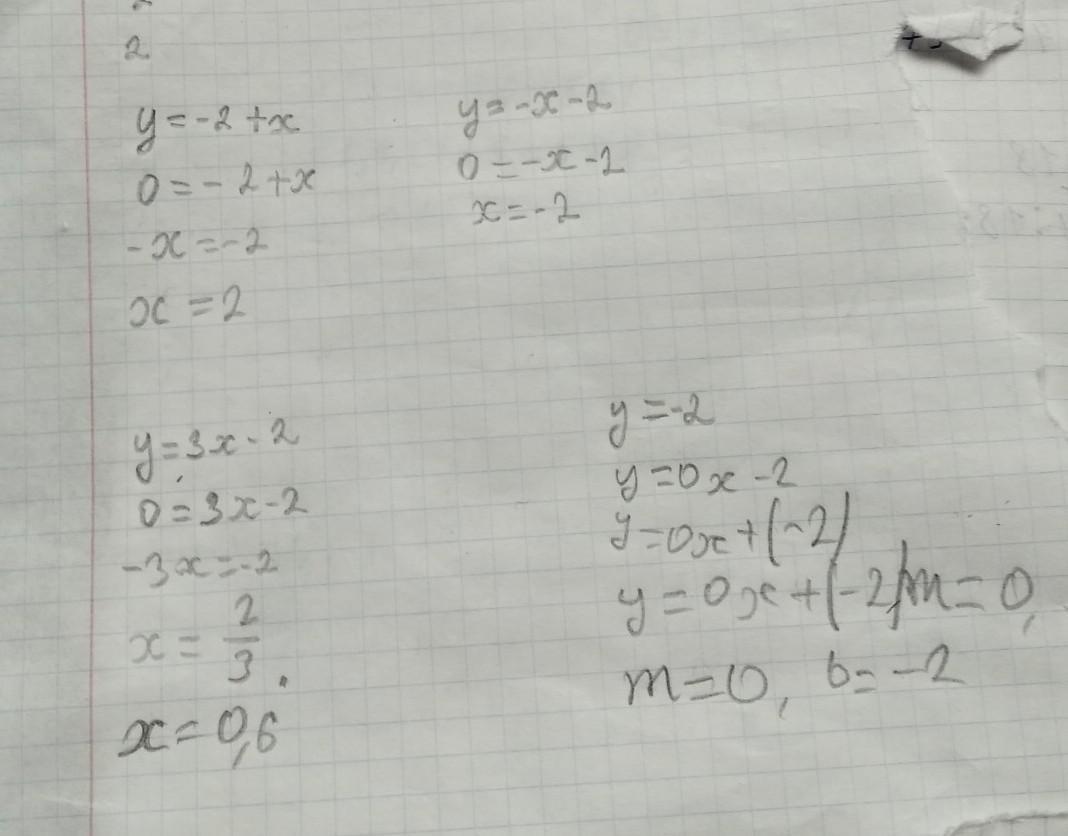 2
y=-2+x
0=-2+x
-x=-2
x=2
y=-x-2
0=-x-2
x=-2
y=3x-2
0=3x-2
-3x=-2
x=2/3.
x=0,6
y=-2
y=0x-2
y=0x+(-2)
y=0x+(-2)m=0,
m=0, b=-2